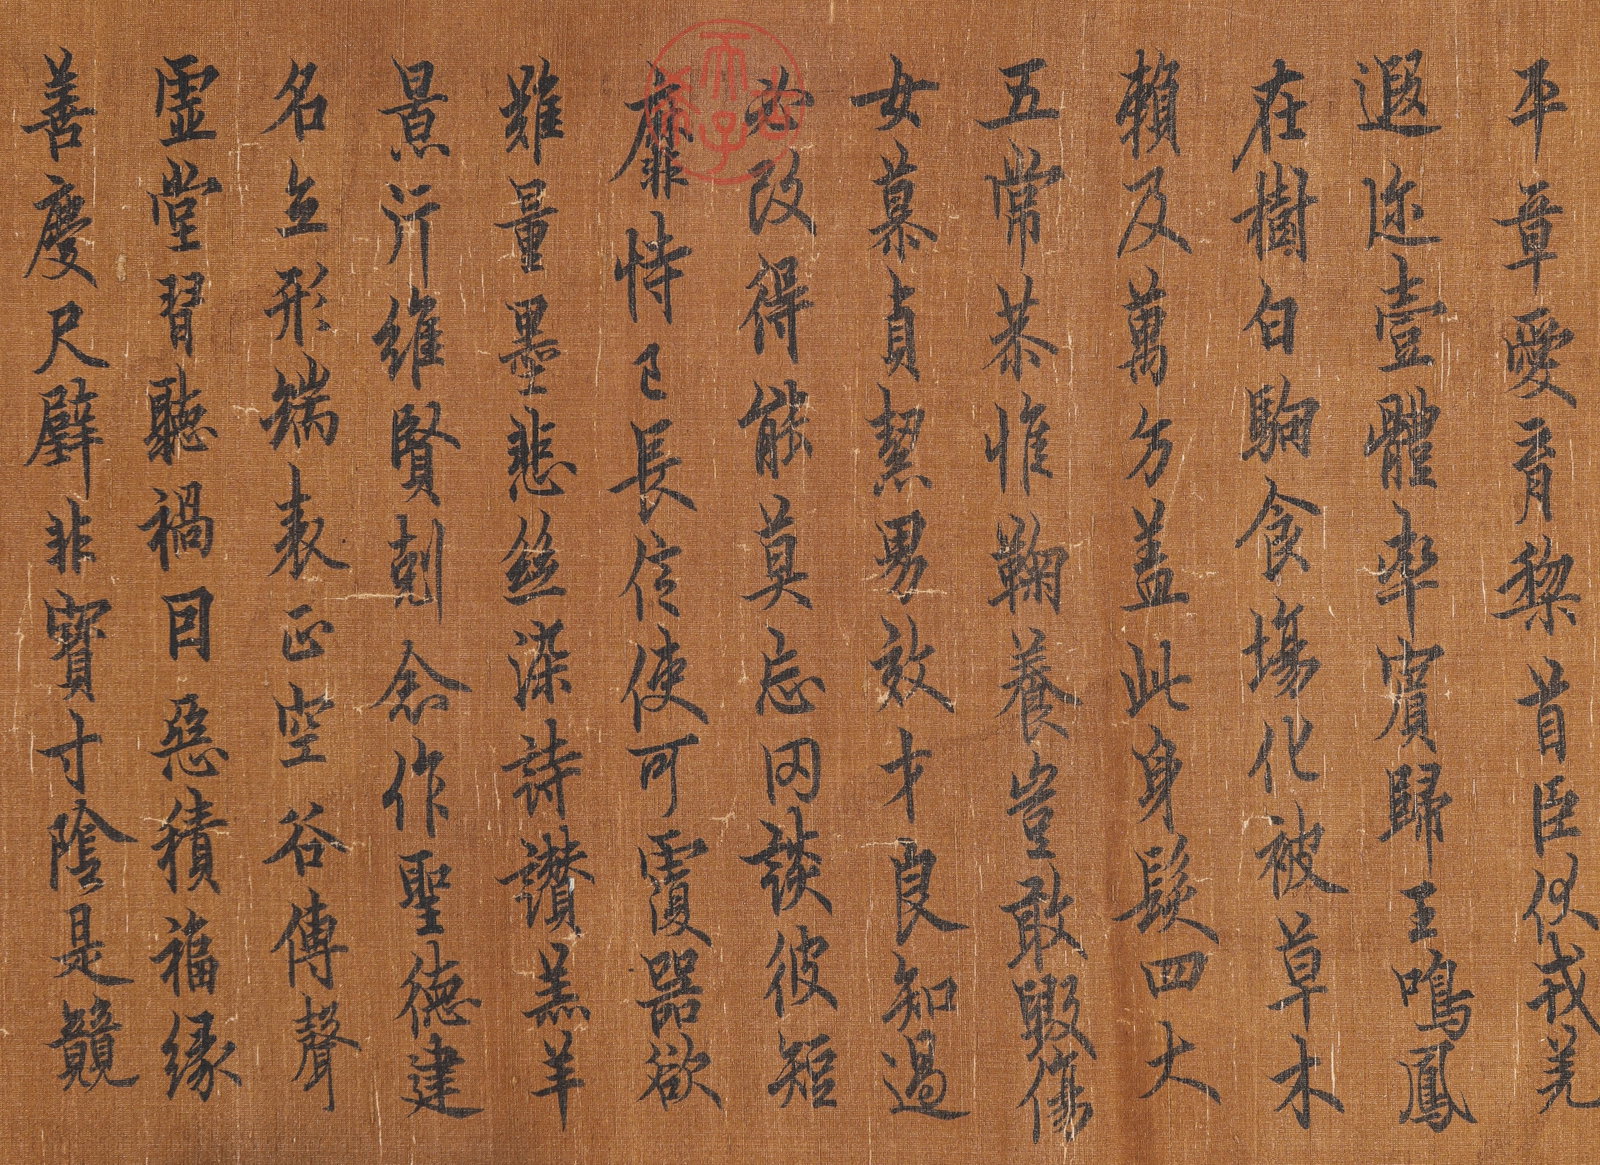 平章愛育黎首臣伏戎羌
遐迩壹體率賓歸王鳴鳳
在樹白駒食場化被草木
賴及萬方盖此身髮四大
五常恭惟鞠養豈敢毀傷
女慕貞絜男效才良知過
必改得能莫忘罔談彼短
靡恃己長信使可覆器欲
難量墨悲絲染詩讚羔羊
景行維賢剋念作聖德建
名立形端表正空谷傳聲
虛堂習聽禍因惡積福緣
善慶尺璧非寶寸陰是競
古希天子